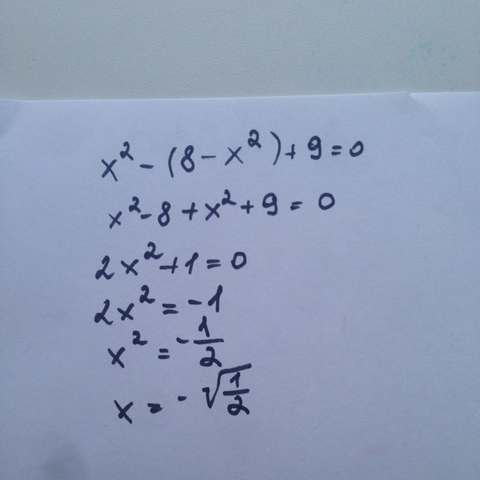 x² - (8 - x²) + 9 = 0
x² - 8 + x² + 9 = 0
2x² + 1 = 0
2x² = -1
x² = -1/2
x = -√(1/2)